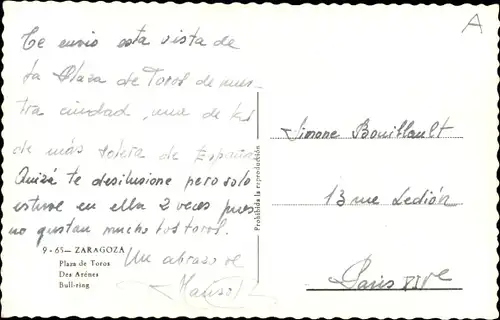 A
Te envio esta vista de
la Plaza de Toros de nues-
tra ciudad, una de las
de más solera de España
Quizá te desilusione pero solo
estuve en ella 2 veces pues
no gustan mucho los toros.
Un abrazo de
9 - 65 — ZARAGOZA
Plaza de Toros
Des Arénes
Bull-ring
Prohibida la reproducción
Simone Bouillault
13 rue Ledión
Paris XIVe